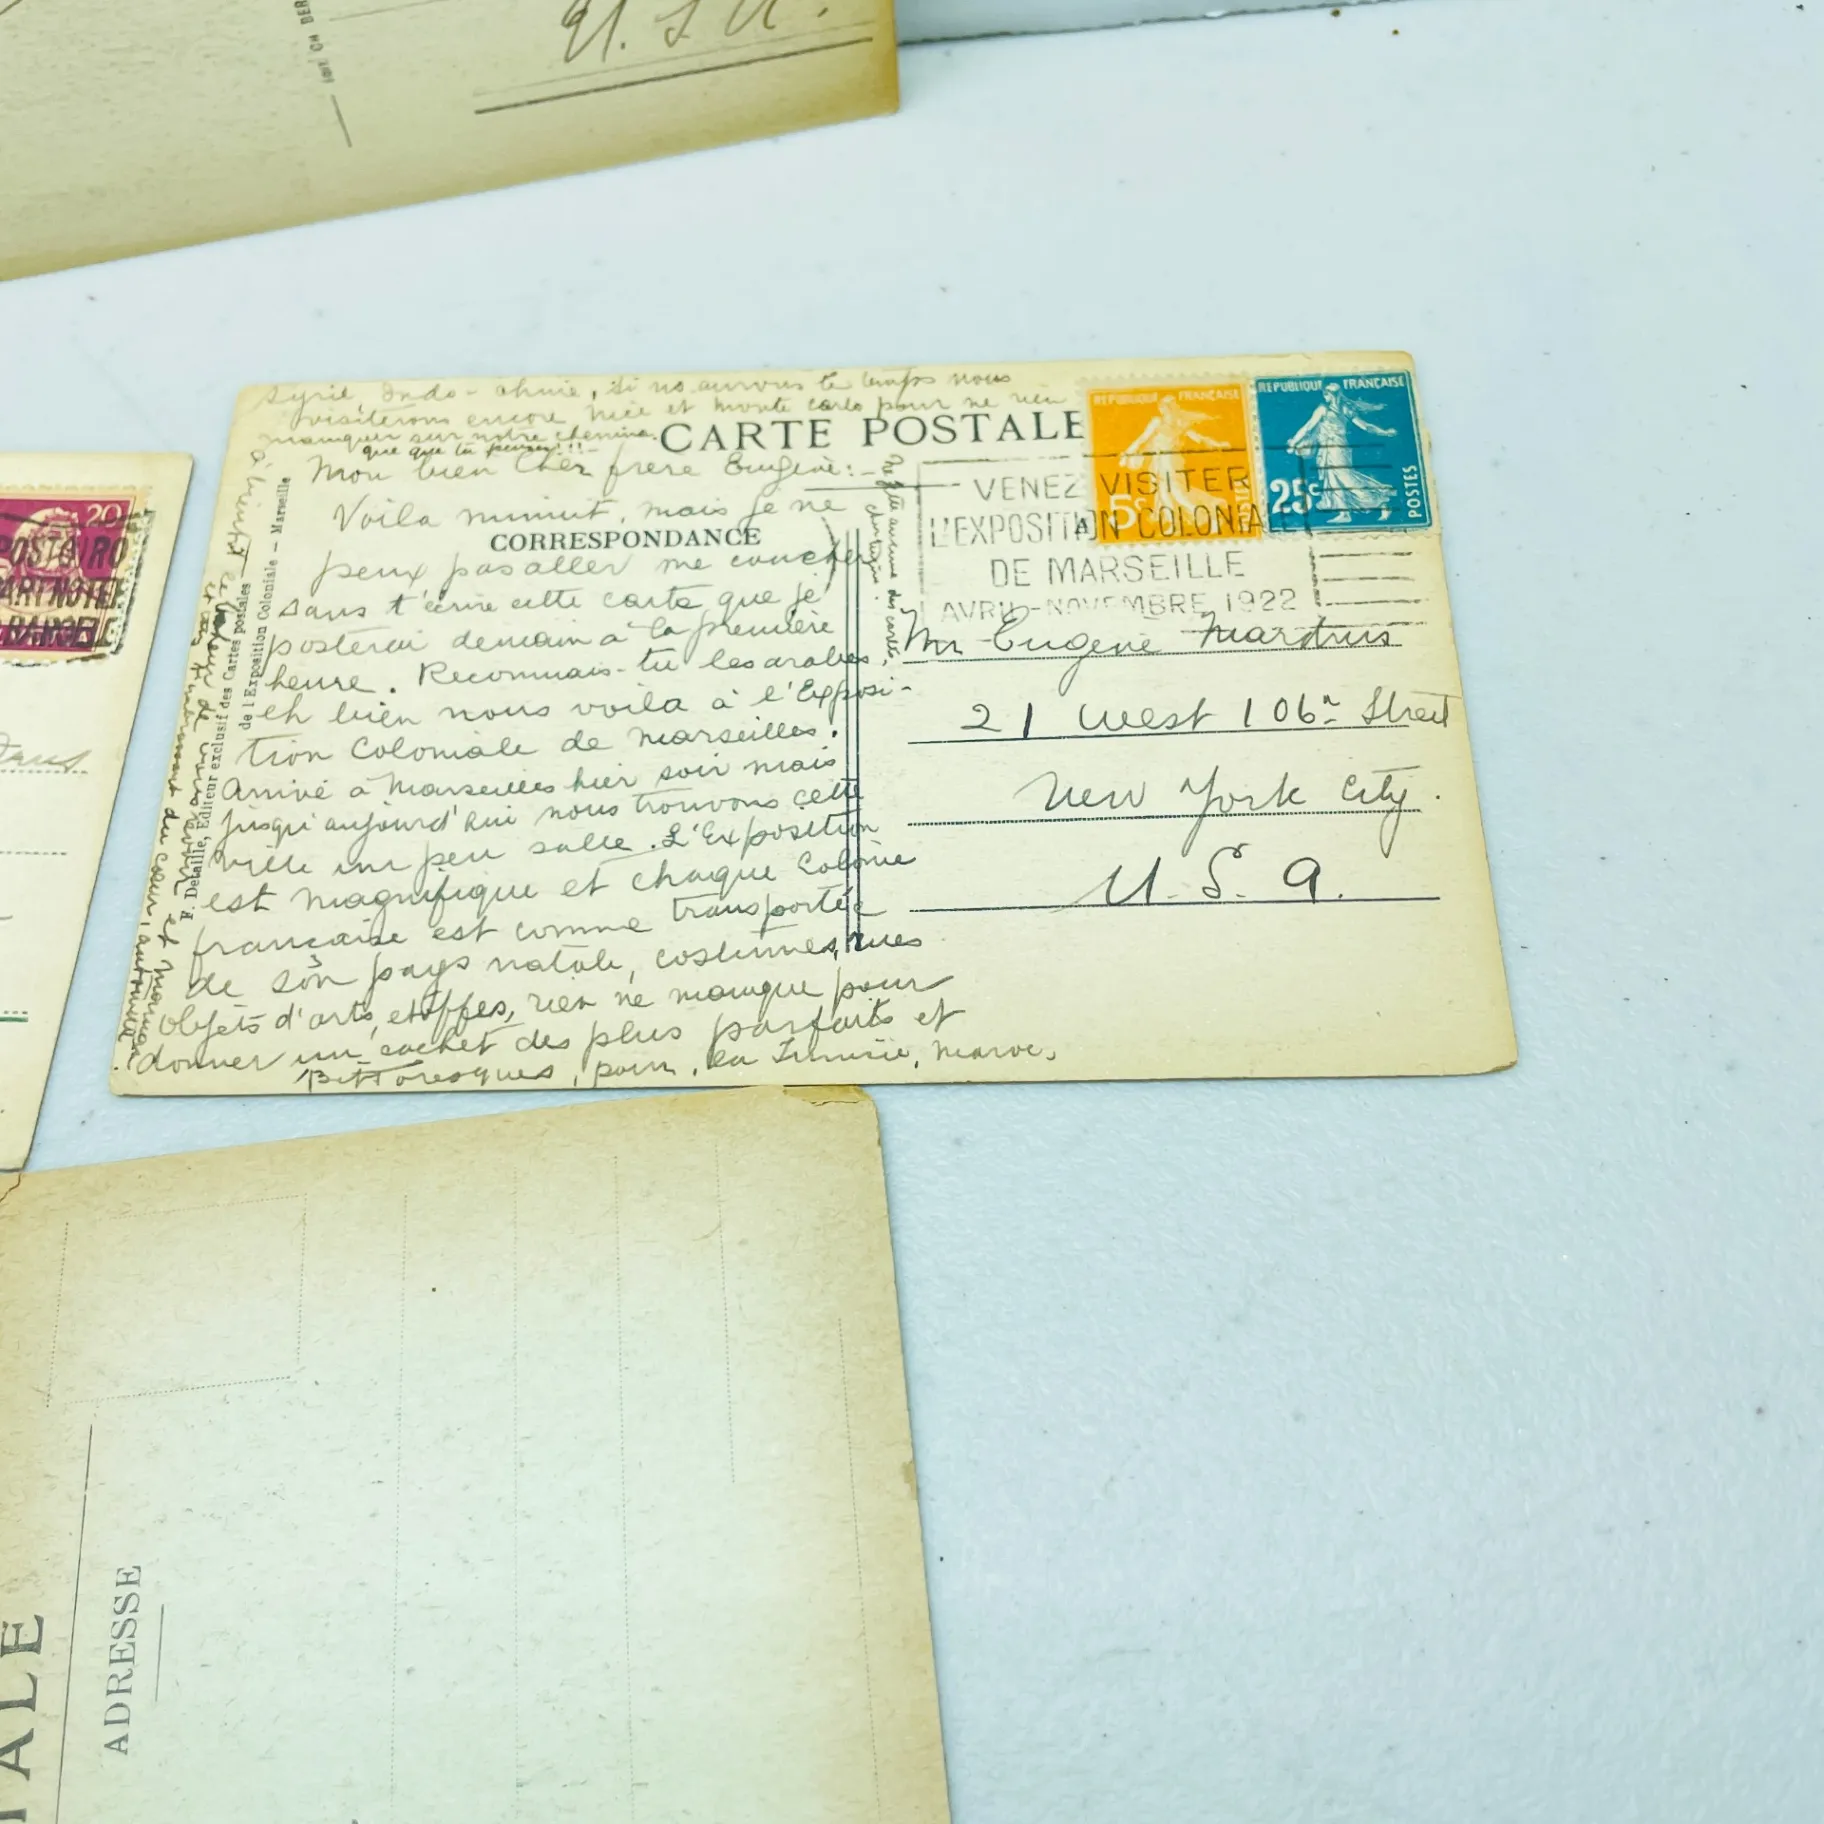 U. S. A.
Syrie, Indo-chine, Si ns avons le temps nous
visiterons encore Nice et Monte Carlo pour ne rien
manquer sur notre chemin.
que que tu penses!!!
CARTE POSTALE
Mon bien Cher frère Eugène:
Voila minuit, mais je ne
CORRESPONDANCE
peux pas aller me coucher
sans t'écrire cette carte que je
posterai demain à la première
heure. Reconnais-tu les arabes,
eh bien nous voila à l'Exposi-
tion Coloniale de Marseilles.
Arrivé à Marseilles hier soir mais
jusqu'aujourd'hui nous trouvons cette
ville un peu salle. L'Exposition
est magnifique et chaque Colonie
française est comme transportée
de son pays natale, costumes, rues
objets d'arts, etoffes, rien ne manque pour
donner un cachet des plus parfaits et
Pittoresques, pour la Tunisie, Maroc,
à bientôt le
de vous revoir et
du cœur,
F. Détaille, Editeur exclusif des Cartes postales
de l'Exposition Coloniale - Marseille
Ne jette aucune des cartes
REPUBLIQUE FRANÇAISE
5c
POSTES
REPUBLIQUE FRANÇAISE
25c
POSTES
VENEZ VISITER
L'EXPOSITION COLONIALE
DE MARSEILLE
AVRIL-NOVEMBRE 1922
Mr Eugène
21 West 106 Street
New York City.
U. S. A.
20
ADRESSE